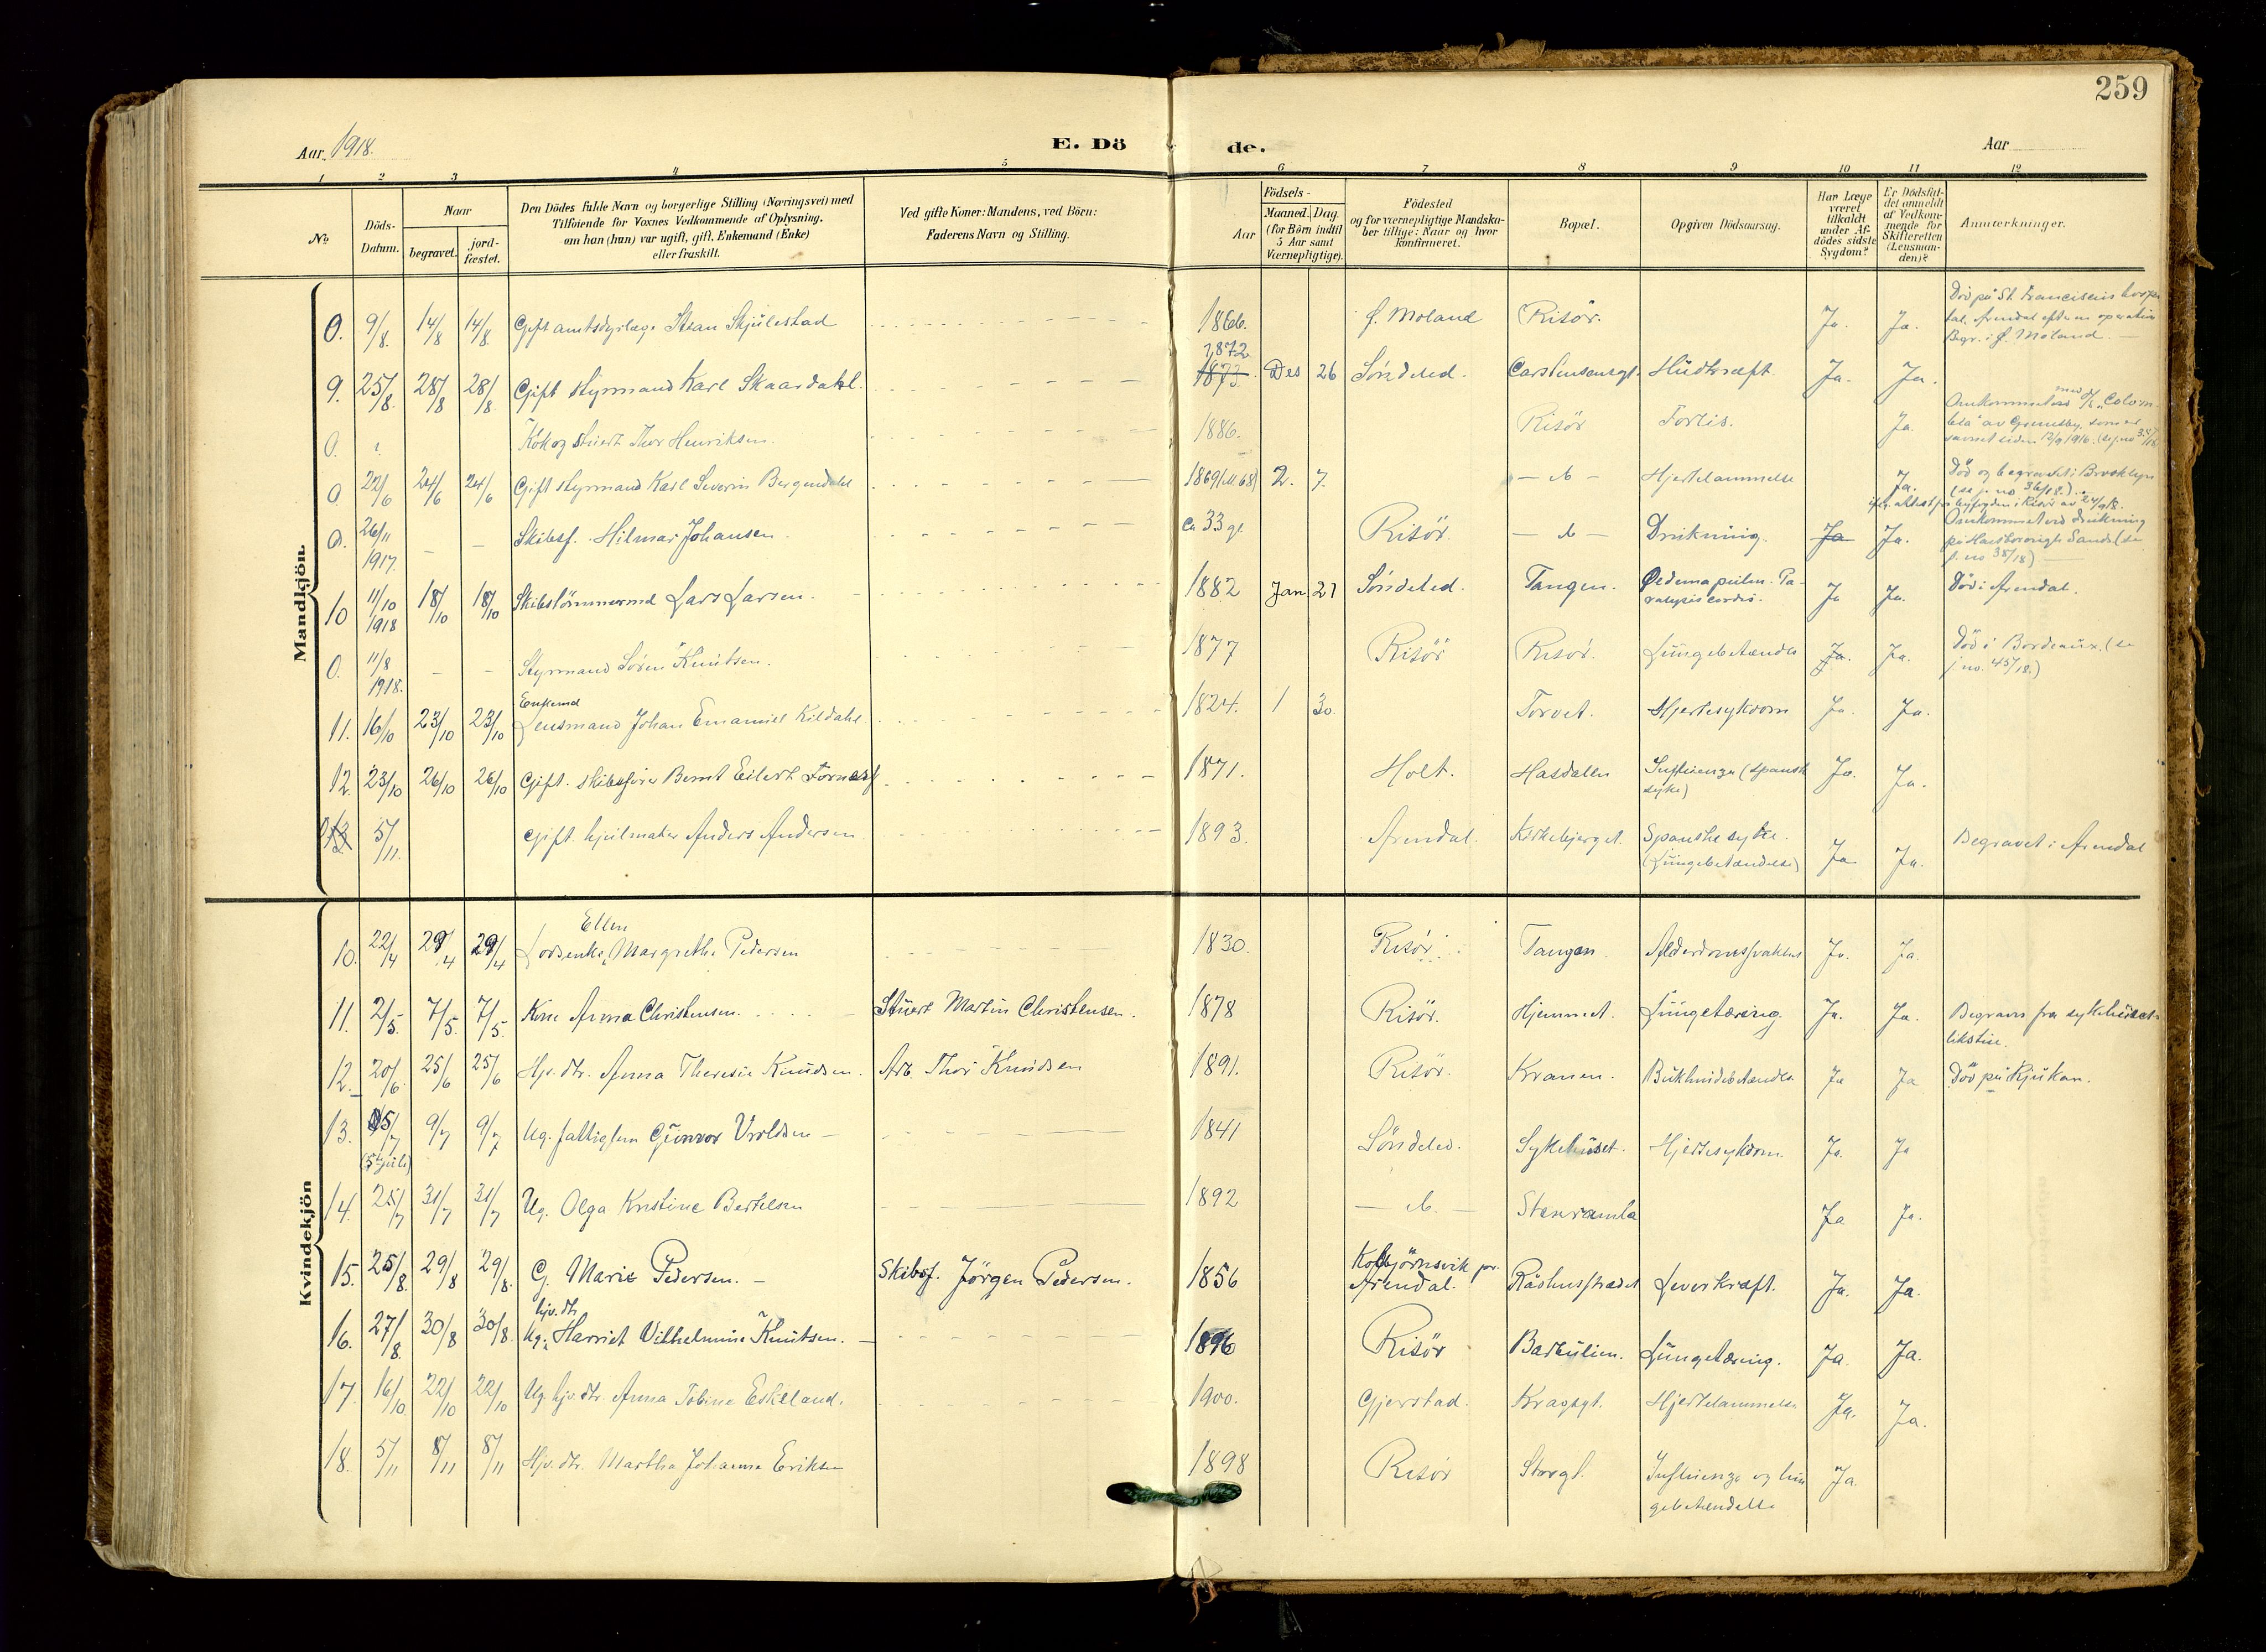 259
Aar 1918. E. Dö de. Aar
1 2 3 4 5 6 7 8 9 10 11 12
No
Döds-Datum.
Naar
begravet. jord-fæstet.
Den Dödes fulde Navn og borgerlige Stilling (Næringsvei) med
Tilföiende for Voxnes Vedkommende af Oplysning,
om han (hun) var ugift, gift, Enkemand (Enke)
eller fraskilt.
Ved gifte Koner: Mandens, ved Börn:
Faderens Navn og Stilling.
Födsels-
Aar Maaned. Dag.
(for Börn indtil
5 Aar samt
Værnepligtige).
Födested
og for værnepligtige Mandska-
ber tillige: Naar og hvor
Konfirmeret.
Bopæl.
Opgiven Dödsaarsag.
Har Læge
været
tilkaldt
under Af-
dödes sidste
Sygdom?
Er Dödsfal-
det anmeldt
af Vedkom-
mende for
Skifteretten
(Lensman-
den)?
Anmerkninger.
Mandkjön.
0. 9/8. 14/8 14/8 Gift amtsdyrlæge Stian Skjulestad 1866. Ø. Moland Risör. Ja. Ja. Död på St. Franciscus hospi
tal, Arendal efter en operation
Begr. i Ø. Moland.
1872
9. 25/8. 28/8 28/8. Gift styrmand Karl Skaardahl. 1873. Des 26 Søndeled. Carstensensgt. Hudkræft. Ja. Ja.
0. ? Kok og stuert Thor Henriksen. 1886. Risör Forlis. Ja. Omkommet med d/s "Colum
bia" av Grimsby, som er
savnet siden 12/9 1916. (se j. no 35/18)
0 22/6 24/6 24/6 Gift styrmand Karl Severin Bergendahl 1869 (ell 68) 2. 7. — do — Hjertelammelse Ja. Död og begravet i Brooklyn
(se j. no 36/18.)
0. 26/11 1917. – – Skibsf. Hilmar Johansen. ca 33 gl. Risör. — do — Drukning. Ja Ja. Omkommet ved drukning
på Haisborough Sands (se
j. no 38/18)
10 11/10 1918 18/10 18/10 Skibstömmermd Lars Larsen. 1882 Jan 27 Søndeled. Tangen. Oedema pulm. Pa-
ralysis cordis. Ja Ja. Död i Arendal.
0. 11/8 1918. – – Styrmand Sören Knutsen. 1877 Risör Risör. Lungebetændelse Ja. Ja. Död i Bordeaux. (se
j. no. 45/18.)
Enkemd
11. 16/10 23/10 23/10 Lensmand Johan Emanuel Kildahl 1824. 1 30 Torvet. Hjertesykdom Ja. Ja.
12. 23/10 26/10 26/10 Gift. skibsfører Bernt Eilert 1871. Holt. Hasdalen Influenza (spansk
syke) Ja. Ja.
5/11. Gift. hjulmaker Anders Andersen 1893. Arendal. Kirkebjerget. Spanske syke.
(Lungebetændelse) Ja Ja. Begravet i Arendal
Kvindekjön
Ellen
10. 22/4 29/4 29/4 Losenke Margrethe Pedersen 1830. Risör. Tangen. Alderdomssvakhet Ja. Ja.
11. 2/5. 7/5. 7/5. Kone Anna Christensen. Stuert Martin Christensen. 1878 Risör. Hjemmet. Lungetæring. Ja. Ja. Begraves fra sykehuset
likstue.
12. 20/6. 25/6 25/6 Hjv. dtr. Anna Theresie Knudsen. Arb. Thor Knudsen 1891. Risör. Kranen. Bukhindebetændelse Ja Ja Död på Rjukan.
13. 5/7 9/7 9/7 Ug. fattiglem Gunvor 1841 Söndeled. Sykehuset. Hjertesykdom. Ja. Ja
(5te juli)
14. 25/7 31/7 31/7 Ug. Olga Kristine Bertelsen 1892 — do. — Stenramla Ja Ja.
15. 25/8. 29/8 29/8. G. Marie Pedersen. — Skibsf. Jörgen Pedersen. 1856 Kolbjörnsvik pr.
Arendal. Rådhusstrædet Leverkræft. Ja. Ja.
hjv. dtr
16. 27/8. 30/8 30/8. Ug. Harriet Vilhelmine Knutsen. 1896 Risör Barbulien. Lungetæring. Ja. Ja.
17. 16/10 22/10 22/10 Ug. hjv. dtr. Anna Tobine Eskeland. 1900. Gjerstad. Kragsgt. Hjertelammelse Ja. Ja.
18. 5/11 8/11 8/11 Hjv. dtr. Martha Johanne Eriksen 1898 Risör Storgt. Influenza og lun
gebetændelse Ja.